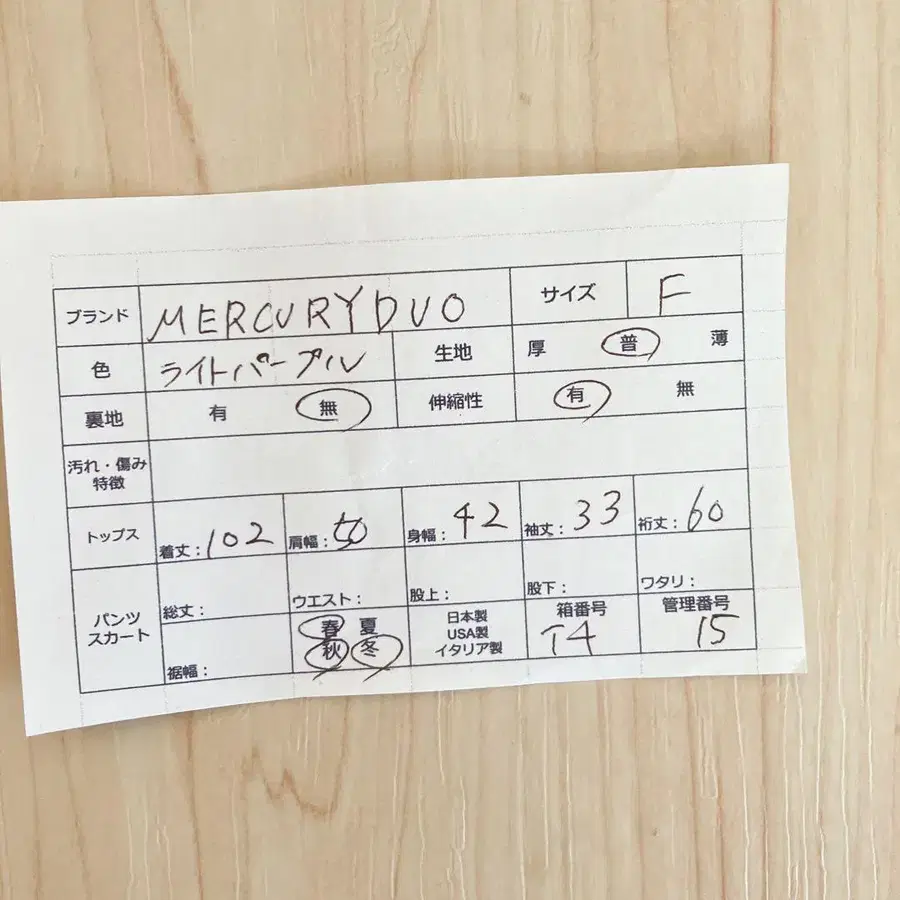 ブランド MERCURYDUO サイズ F
色 ライトパープル 生地 厚 普 薄
裏地 有 無 伸縮性 有 無
汚れ・傷み
特徴
トップス 着丈：102 肩幅：50 身幅：42 袖丈：33 裄丈：60
パンツ
スカート
総丈： ウエスト： 股上： 股下： ワタリ：
裾幅：
春 夏
秋 冬
日本製
USA製
イタリア製
箱番号
T4
管理番号
15